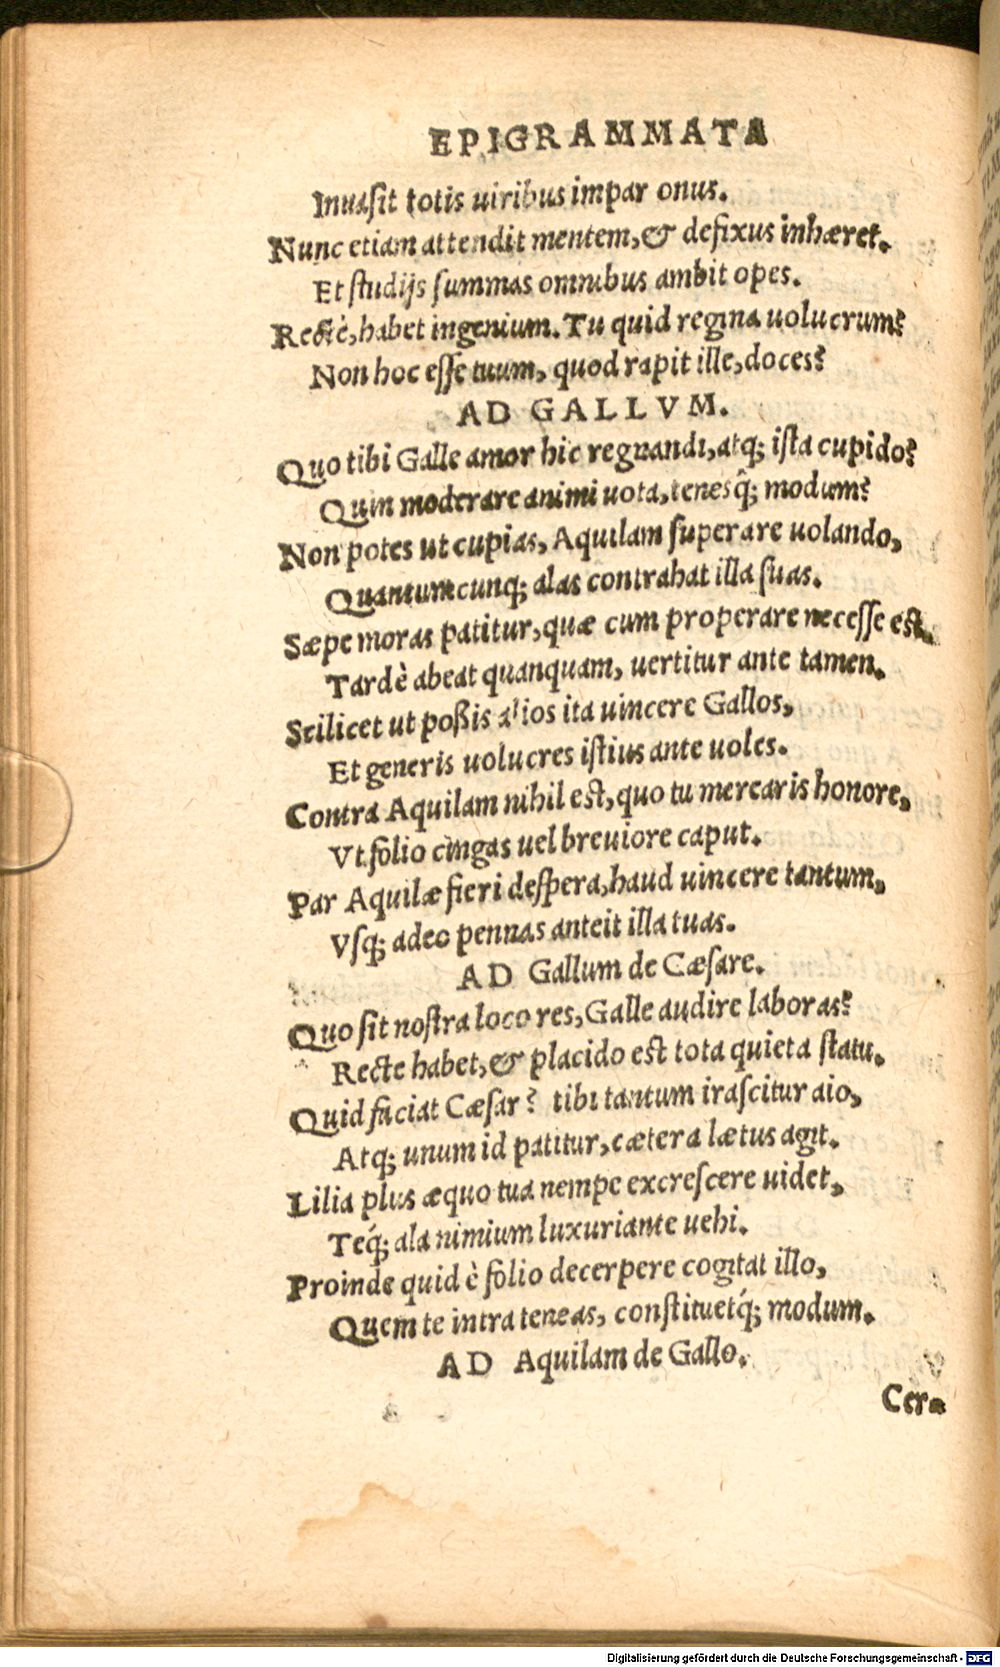 EPIGRAMMATA
Inuasit totis uiribus impar onus.
Nunc etiam attendit mentem, & defixus inhæret.
Et studijs summas omnibus ambit opes.
Rectè, habet ingenium. Tu quid regina uolucrum?
Non hoc esse tuum, quod rapit ille, doces?
AD GALLVM.
Quo tibi Galle amor hic regnandi, atq; ista cupido?
Quin moderare animi uota, tenesq̂; modum?
Non potes ut cupias, Aquilam superare uolando,
Quantumcunq; alas contrahat illa suas.
Sæpe moras patitur, quæ cum properare necesse est,
Tardè abeat quanquam, uertitur ante tamen.
Scilicet ut poßis alios ita uincere Gallos,
Et generis uolucres istius ante uoles.
Contra Aquilam nihil est, quo tu mercaris honore,
Vt folio cingas uel breuiore caput.
Par Aquilæ fieri despera, haud uincere tantum,
Vsq; adeo pennas anteit illa tuas.
AD Gallum de Cæsare.
Quo sit nostra loco res, Galle audire laboras?
Recte habet, & placido est tota quieta statu.
Quid faciat Cæsar? tibi tantum irascitur aio,
Atq; unum id patitur, cætera lætus agit.
Lilia plus æquo tua nempe excrescere uidet,
Teq́; ala nimium luxuriante uehi.
Proinde quid è folio decerpere cogitat illo,
Quem te intra teneas, constituetq́; modum.
AD Aquilam de Gallo.
Cer-
Digitalisierung gefördert durch die Deutsche Forschungsgemeinschaft - DFG